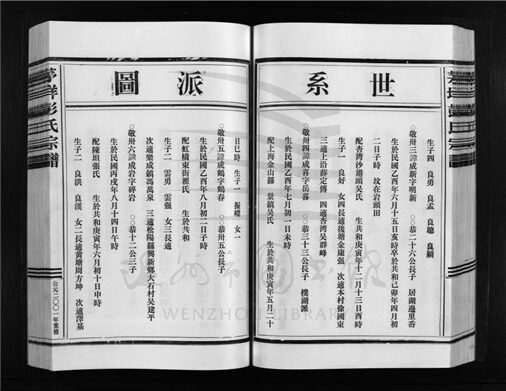 世系
生子四 良勇 良孟 良聰 良穎
○敬卅三諱成新字明新 ○恭二十六公長子 居湖邊里嶴
生於民國乙酉年六月十五日亥時卒於共和己卯年四月初
二日子時 坟在岩頭田
配杏湾沙港頭吳氏 生於共和年十二月十三日酉時
生子一 良好 女四長適後塘金康強 次適本村徐國東
三適上沿薛定傳 四適杏湾吳群峰
○敬卅四諱成喜字岳喜 ○恭三十三公長子 樸湖派
生於民國乙酉年七月初一日未時
配上海金山縣 景鎮吳氏 生於共和庚寅年五月二十
派圖
日巳時 生子一 振嶸 女一
○敬卅五諱成鶴字鶴春 ○恭卅五公長子
生於民國乙酉年八月初二日子時
配虹橋東街鄭氏 生於共和
生子二 雲勇 雲强 女三長適
次適樂成鎮馮萬泉 三適松陽縣興新鄉大石村吳建平
○敬卅六諱成岩字碎岩 ○恭十二公三子
生於民國丙戌年八月十四日午時
配陳坦張氏 生於共和庚寅年六月初十日申時
生子二 良洪 良漢 女二長適黄塘周方坤 次適澤基
茅垟彭氏宗譜
公元二〇〇一年重修
WENZHOU LIBRARY